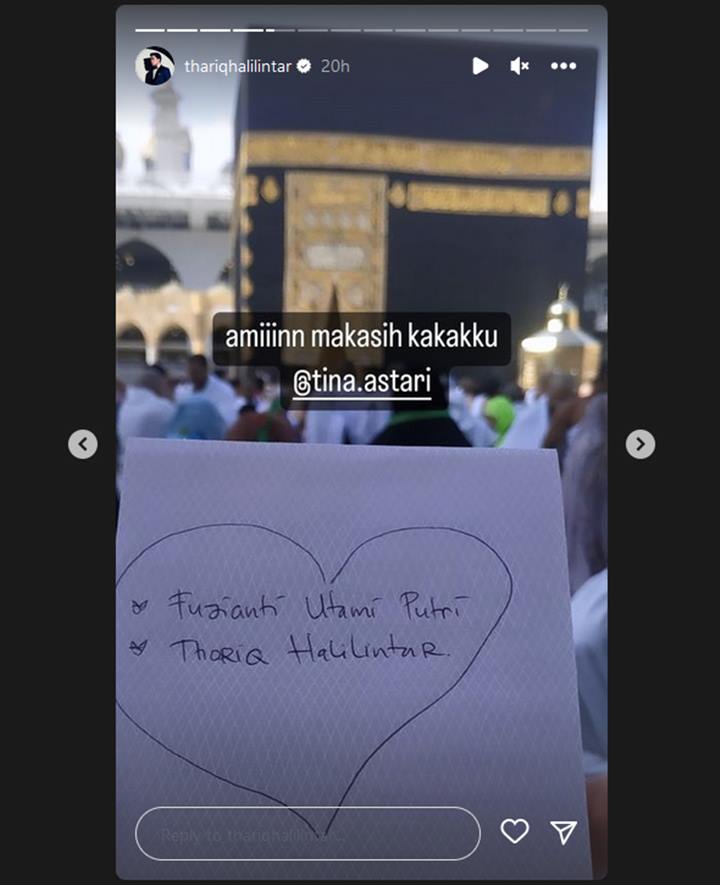 thariqhalilintar 20h
amiiinn makasih kakakku
@tina.astari
Fuzianti Utami Putri
Thoriq Halilintar.
Reply to thariqhalilintar...